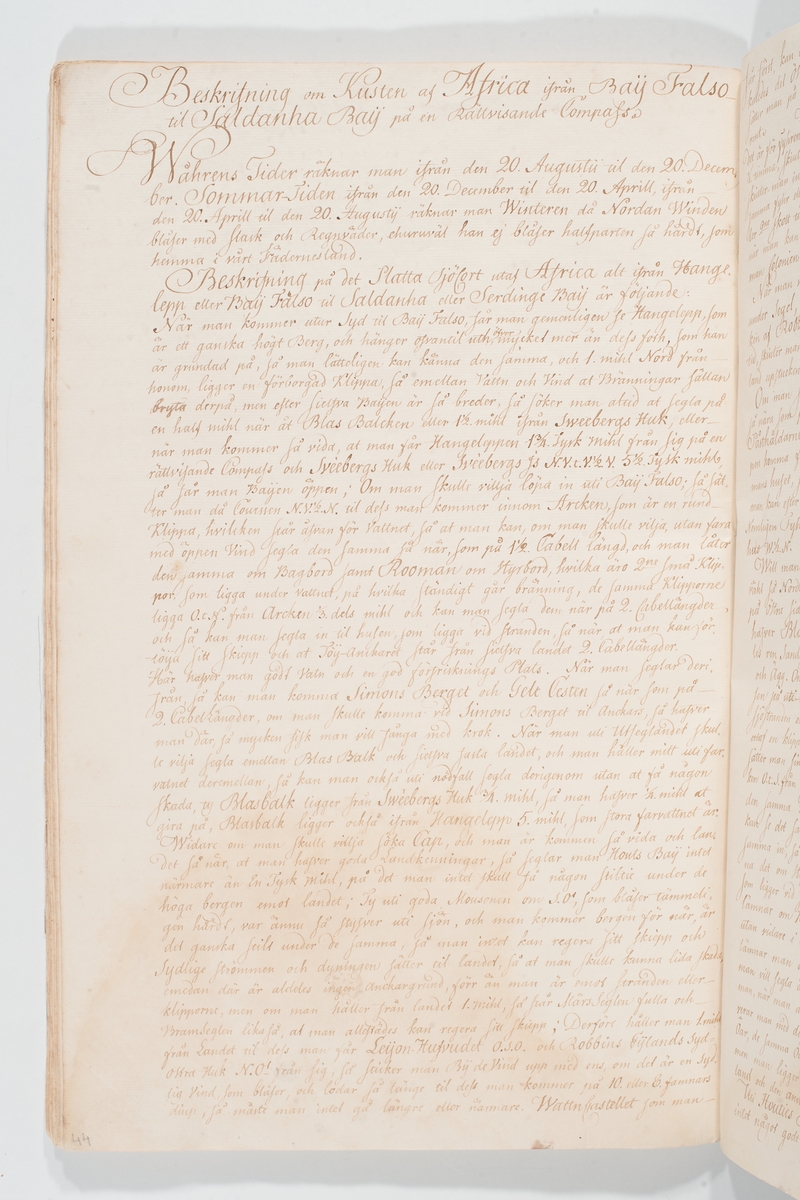 Beskrifning om Kusten af Africa ifrån Baÿ Falso
til Saldanha Baÿ på en Rättvisande Compass.
Wåhrens Tider räknar man ifrån den 20. Augustii til den 20. Decem
ber. Sommar-Tiden ifrån den 20. December til den 20. Aprill, ifrån
den 20. Aprill til den 20. Augustij räknar man Winteren då Nordan Winden
blåser med stark och Regnväder, ehuruwäl han ej blåser halfparten så hårdt, som
hemma i vårt Fädernesland.
Beskrifning på det Platta Sjöfort utaf Africa alt ifrån Hange,
lepp eller Baÿ Falso til Saldanha eller Serdinge Baÿ är följande:
När man kommer utur Syd til Baÿ Falso, får man gemenligen se Hangelepp, som
är ett ganska högt Berg, och hänger ofvantil uth mycket mer än dess foth, som han
är grundad på, så man lätteligen kan känna den samma, och 1. mihl Nord från
honom, ligger en förborgad Klippa, så emellan Vattn och Vind at Bränningar sällan
bryta derpå, men efter sielfva Baÿen är så breder, så söker man altid at segla på
en half mihl när åt Blas Balcken eller 1½ mihl ifrån Sweebergs Huk, eller
när man kommer så vida, at man får Hangeleppen 1¾ Tysk mihl från sig på en
rättvisande Compass och Sweebergs Huk eller Sweebergs N.V.t.V.½V. 5½ Tysk mihls,
så får man Baijen öppen; Om man skulle villja löpa in uti Baÿ Falso; så sät,
ter man då Coursen N.V.½.N. til dess man kommer innom Arcken, som är en rund
Klippa, hvilcken står åfvan för Vattnet, så at man kan, om man skulle vilja, utan fara
med öppen Vind segla den samma så när, som på 1½ Cabell längd, och man låter
den samma om Bagbord samt Rooman om Styrbord, hvilka äro 2ne små Klip,
por, som ligga under vattnet, på hvilka ständigt går bränning, de samma Klipporne
ligga O.t.N. från Arcken ⅓ dels mihl och kan man segla dem när på 2. Cabellängder,
och så kan man segla in til husen, som ligga vid stranden, så när, at man kan för,
töija sitt skiepp och at Töij-Anckaret står från sielfva landet 2. Cabellängder.
Här hafver man godt Vatn och en god förfrisknings Plats. När man seglar deri,
från, så kan man komma Simons Berget och Gele Cesten så när som på
2. Cabellängder, om man skulle komma vid Simons Berget til Anckars, så hafver
man där, så mycken fisk man vill fånga med krok. När man uti Utseglandet skul,
le vilja segla emellan Blas Balk och sielfva fasta landet, och man håller mitt uti far,
vatnet deremellan, så kan man också uti nödfall segla derigenom utan at få någon
skada, ty Blasbalk ligger från Sweebergs Huk ¾. mihl, så man hafver ¾. mihl at
gira på, Blasbalk ligger också ifrån Hangelepp 5. mihl, som stora farvattnet är.
Widare om man skulle villja söka Cap, och man är kommen så vida och lan,
det så när, at man hafver goda Landkenningar, så seglar man Houts Baÿ intet
närmare än En Tysk mihl, på det man intet skall få någon stiltie under de
höga bergen emot landet; Ty uti goda Mousonen om S.O.t, som blåser tämmeli,
gen hårdt, var ännu så styfver uti siön, och man kommer bergen för när, är
det ganska stilt under de samma, så man intet kan regera sitt skiepp och
Sydlige strömmen och dyningen sätter til landet, så at man skulle kunna lida skada
emedan där är aldeles ingen Anckargrund, förr än man är emot stranden eller
klipporne, men om man håller från landet 1. mihl, så står Märs-Seglen fulla och
BramSeglen likaså, at man allestädes kan regera sitt skiepp; Derföre håller man 1. mihl
från Landet til dess man får Leijon-Hufvudet O.S.O. och Robbins Eijlands Syd
Ostra Huk N.O.t från sig, så sticker man Bij de Vind upp med ens, om det är en Syd,
lig Vind, som blåser, och lödar så länge til dess man kommer på 10. eller 6. famnars
diup, så måste man intet gå längre eller närmare. Wattn Castellet som man
44